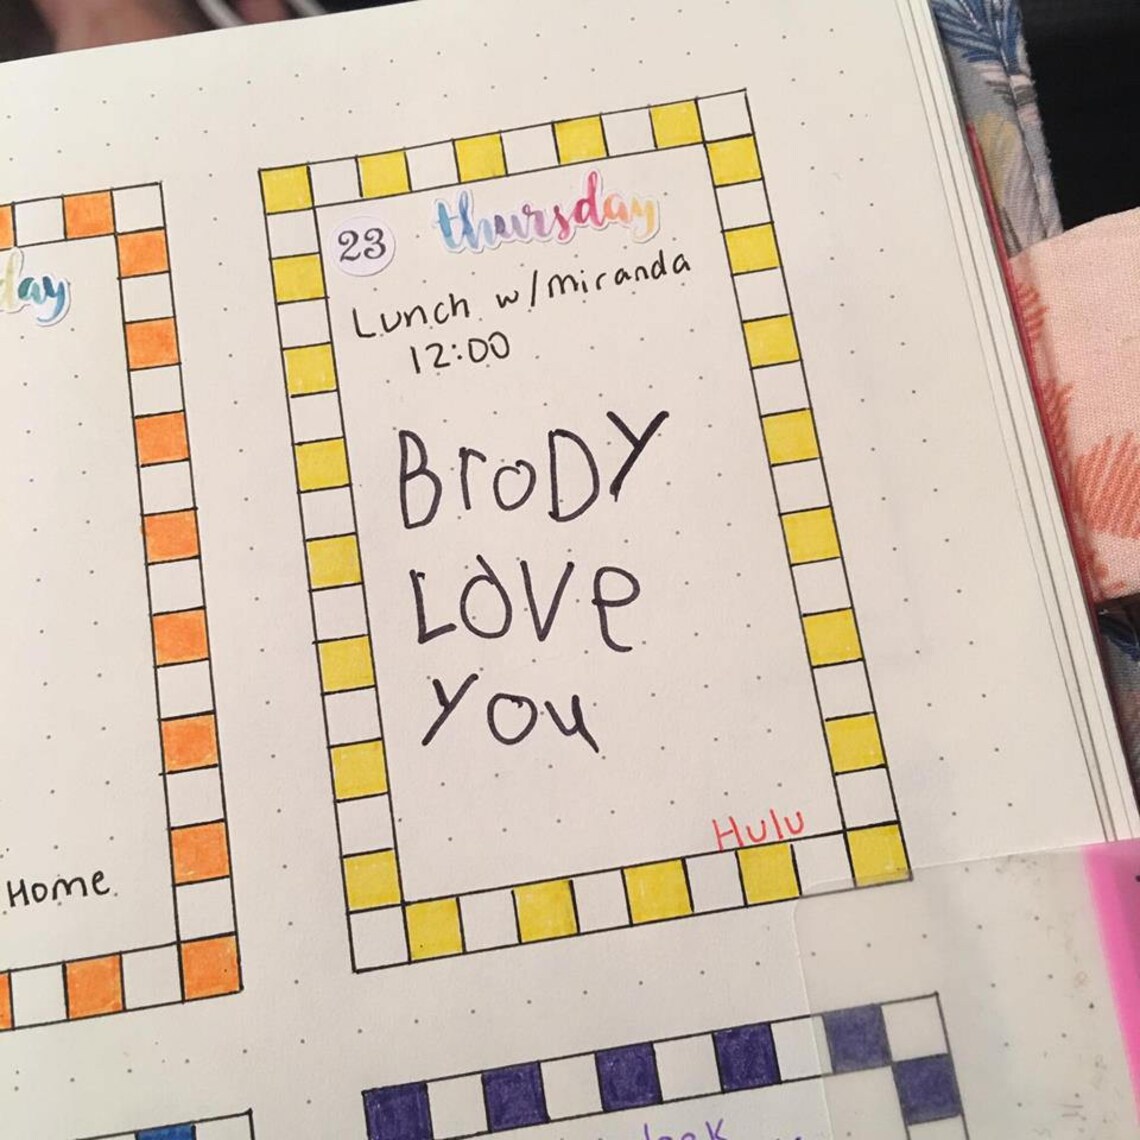 day
Home
23 thursday
Lunch w/miranda
12:00
BroDY
LOVe
You
Hulu